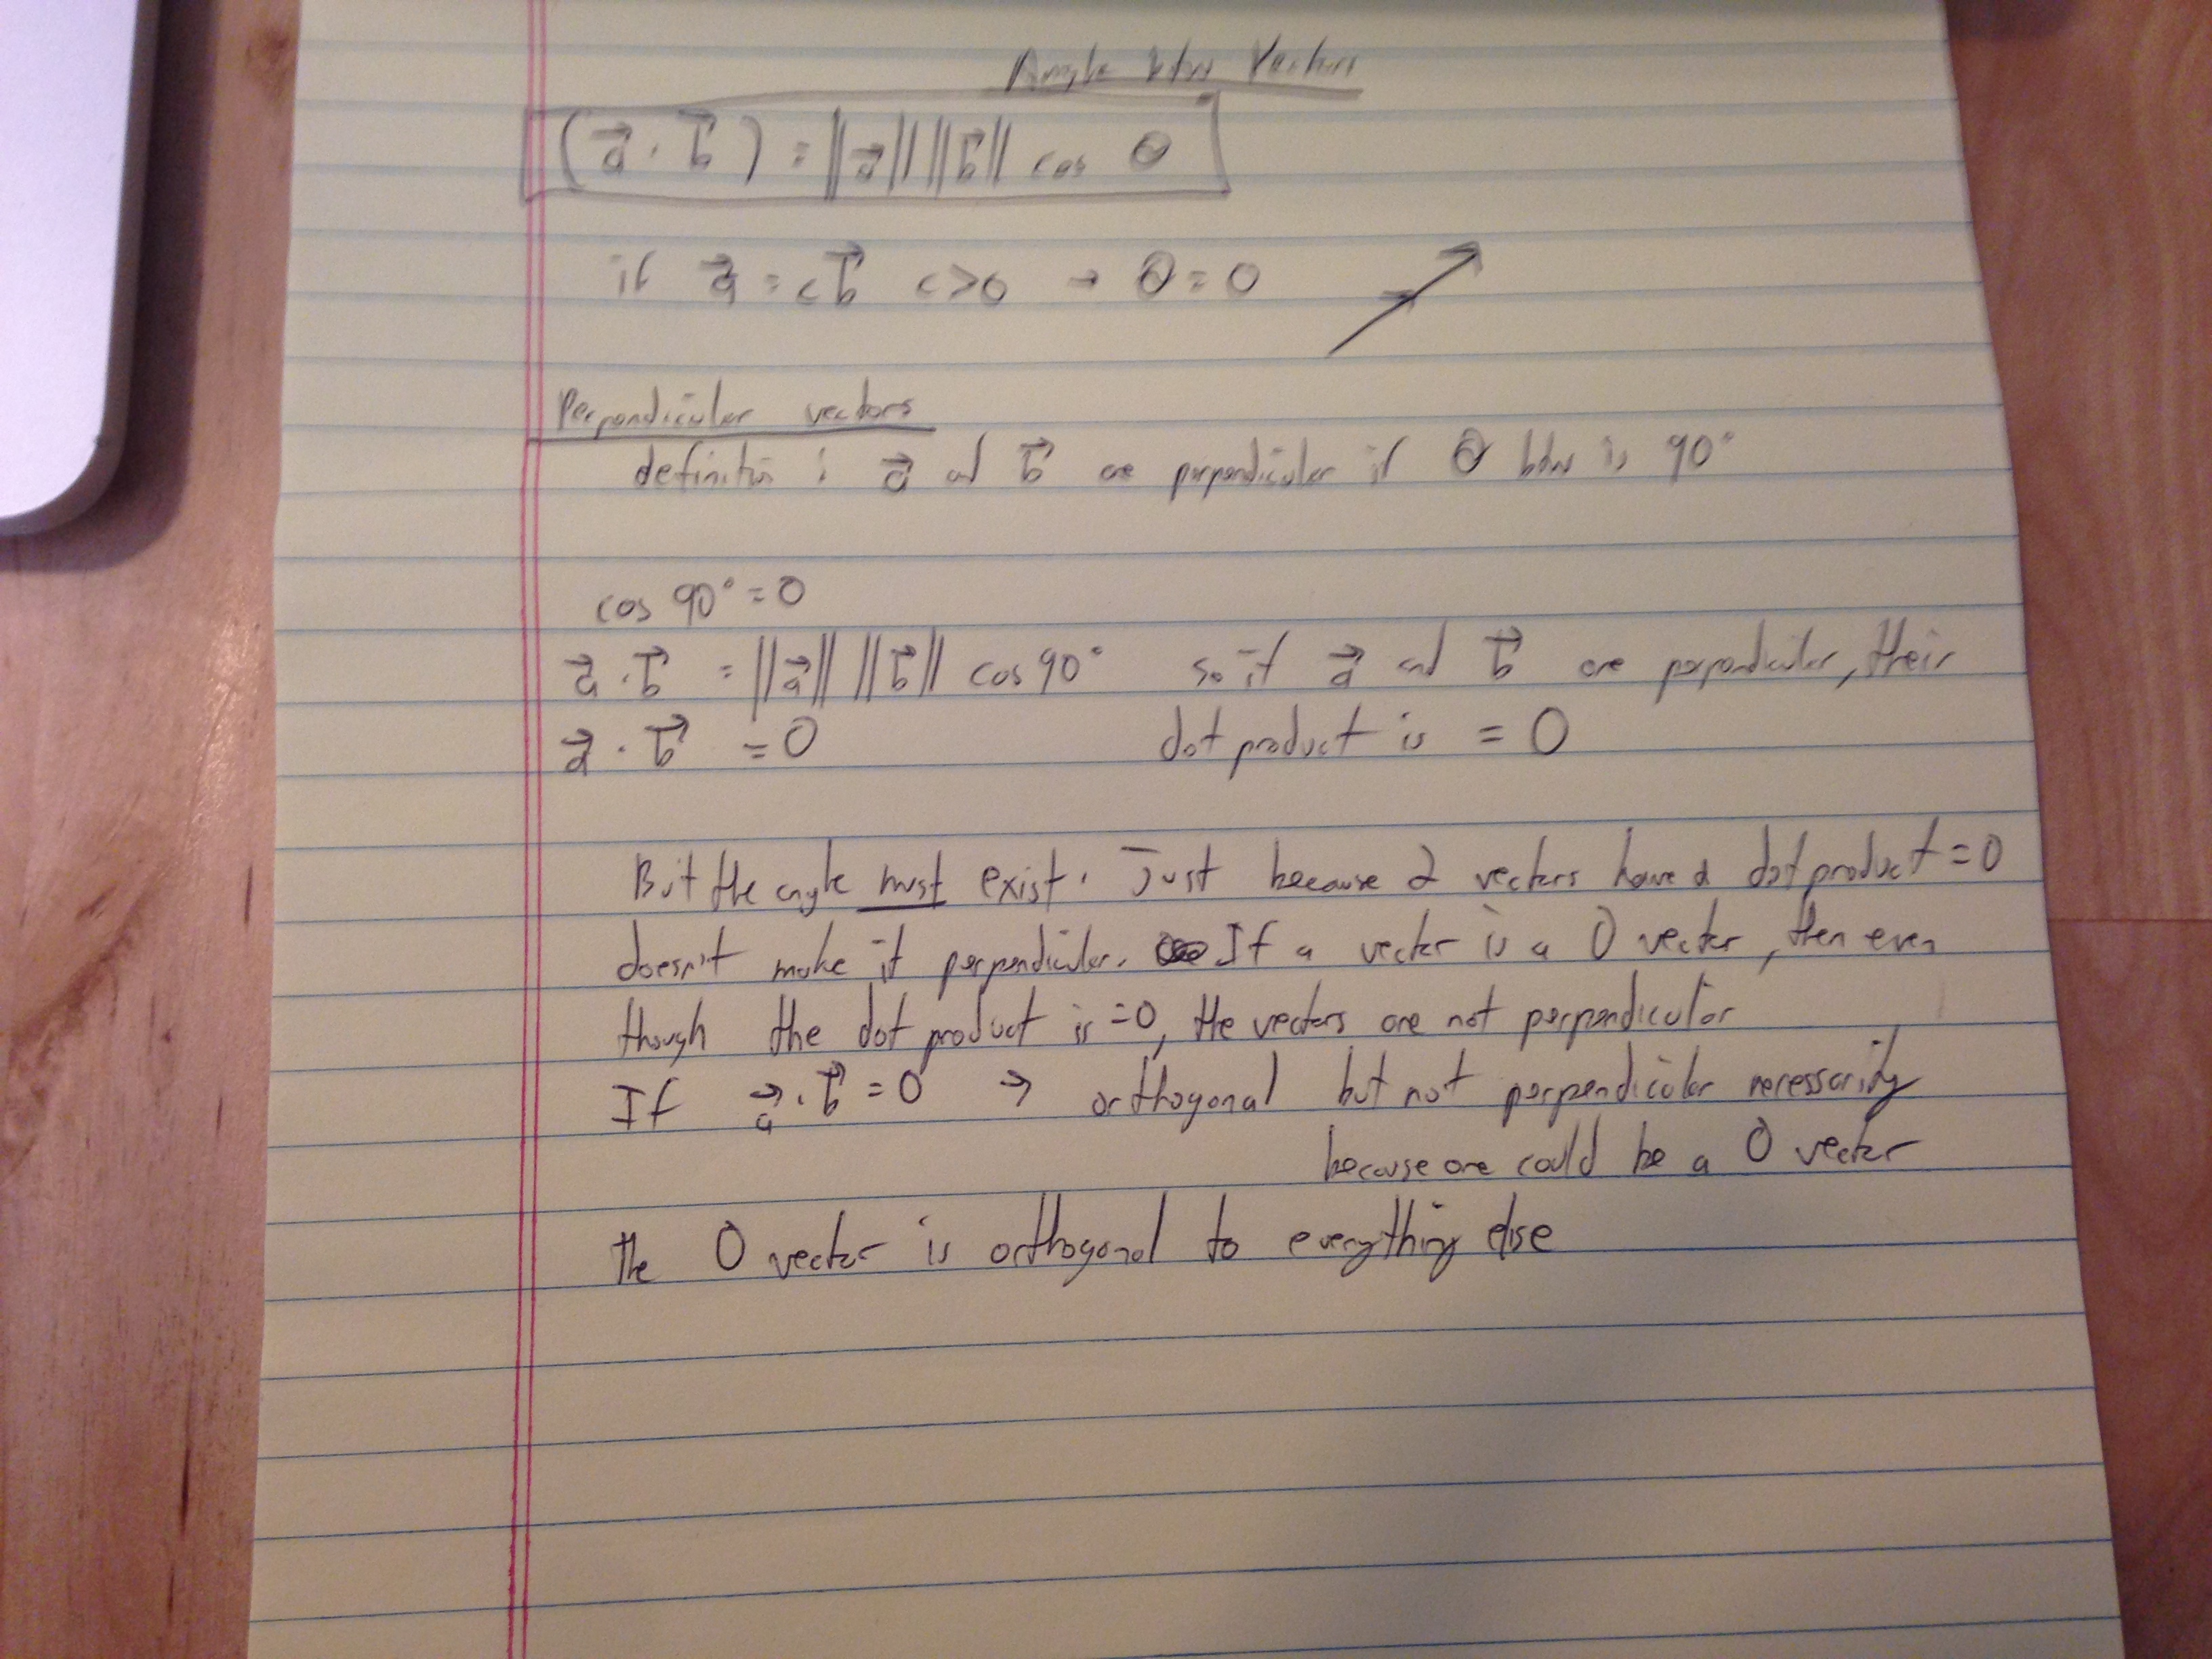 Angle btw Vectors
(a⃗ · b⃗) = ||a⃗|| ||b⃗|| cos θ
if a⃗ = c b⃗ c>0 → θ = 0
Perpendicular vectors
definition: a⃗ and b⃗ are perpendicular if θ btw is 90°
cos 90° = 0
a⃗ · b⃗ = ||a⃗|| ||b⃗|| cos 90° so if a⃗ and b⃗ are perpendicular, their
a⃗ · b⃗ = 0 dot product is = 0
But the angle must exist. Just because 2 vectors have a dot product = 0
doesn't make it perpendicular. If a vector is a 0 vector, then even
though the dot product is = 0, the vectors are not perpendicular
If a⃗ · b⃗ = 0 → orthogonal but not perpendicular necessarily
because one could be a 0 vector
the 0 vector is orthogonal to everything else